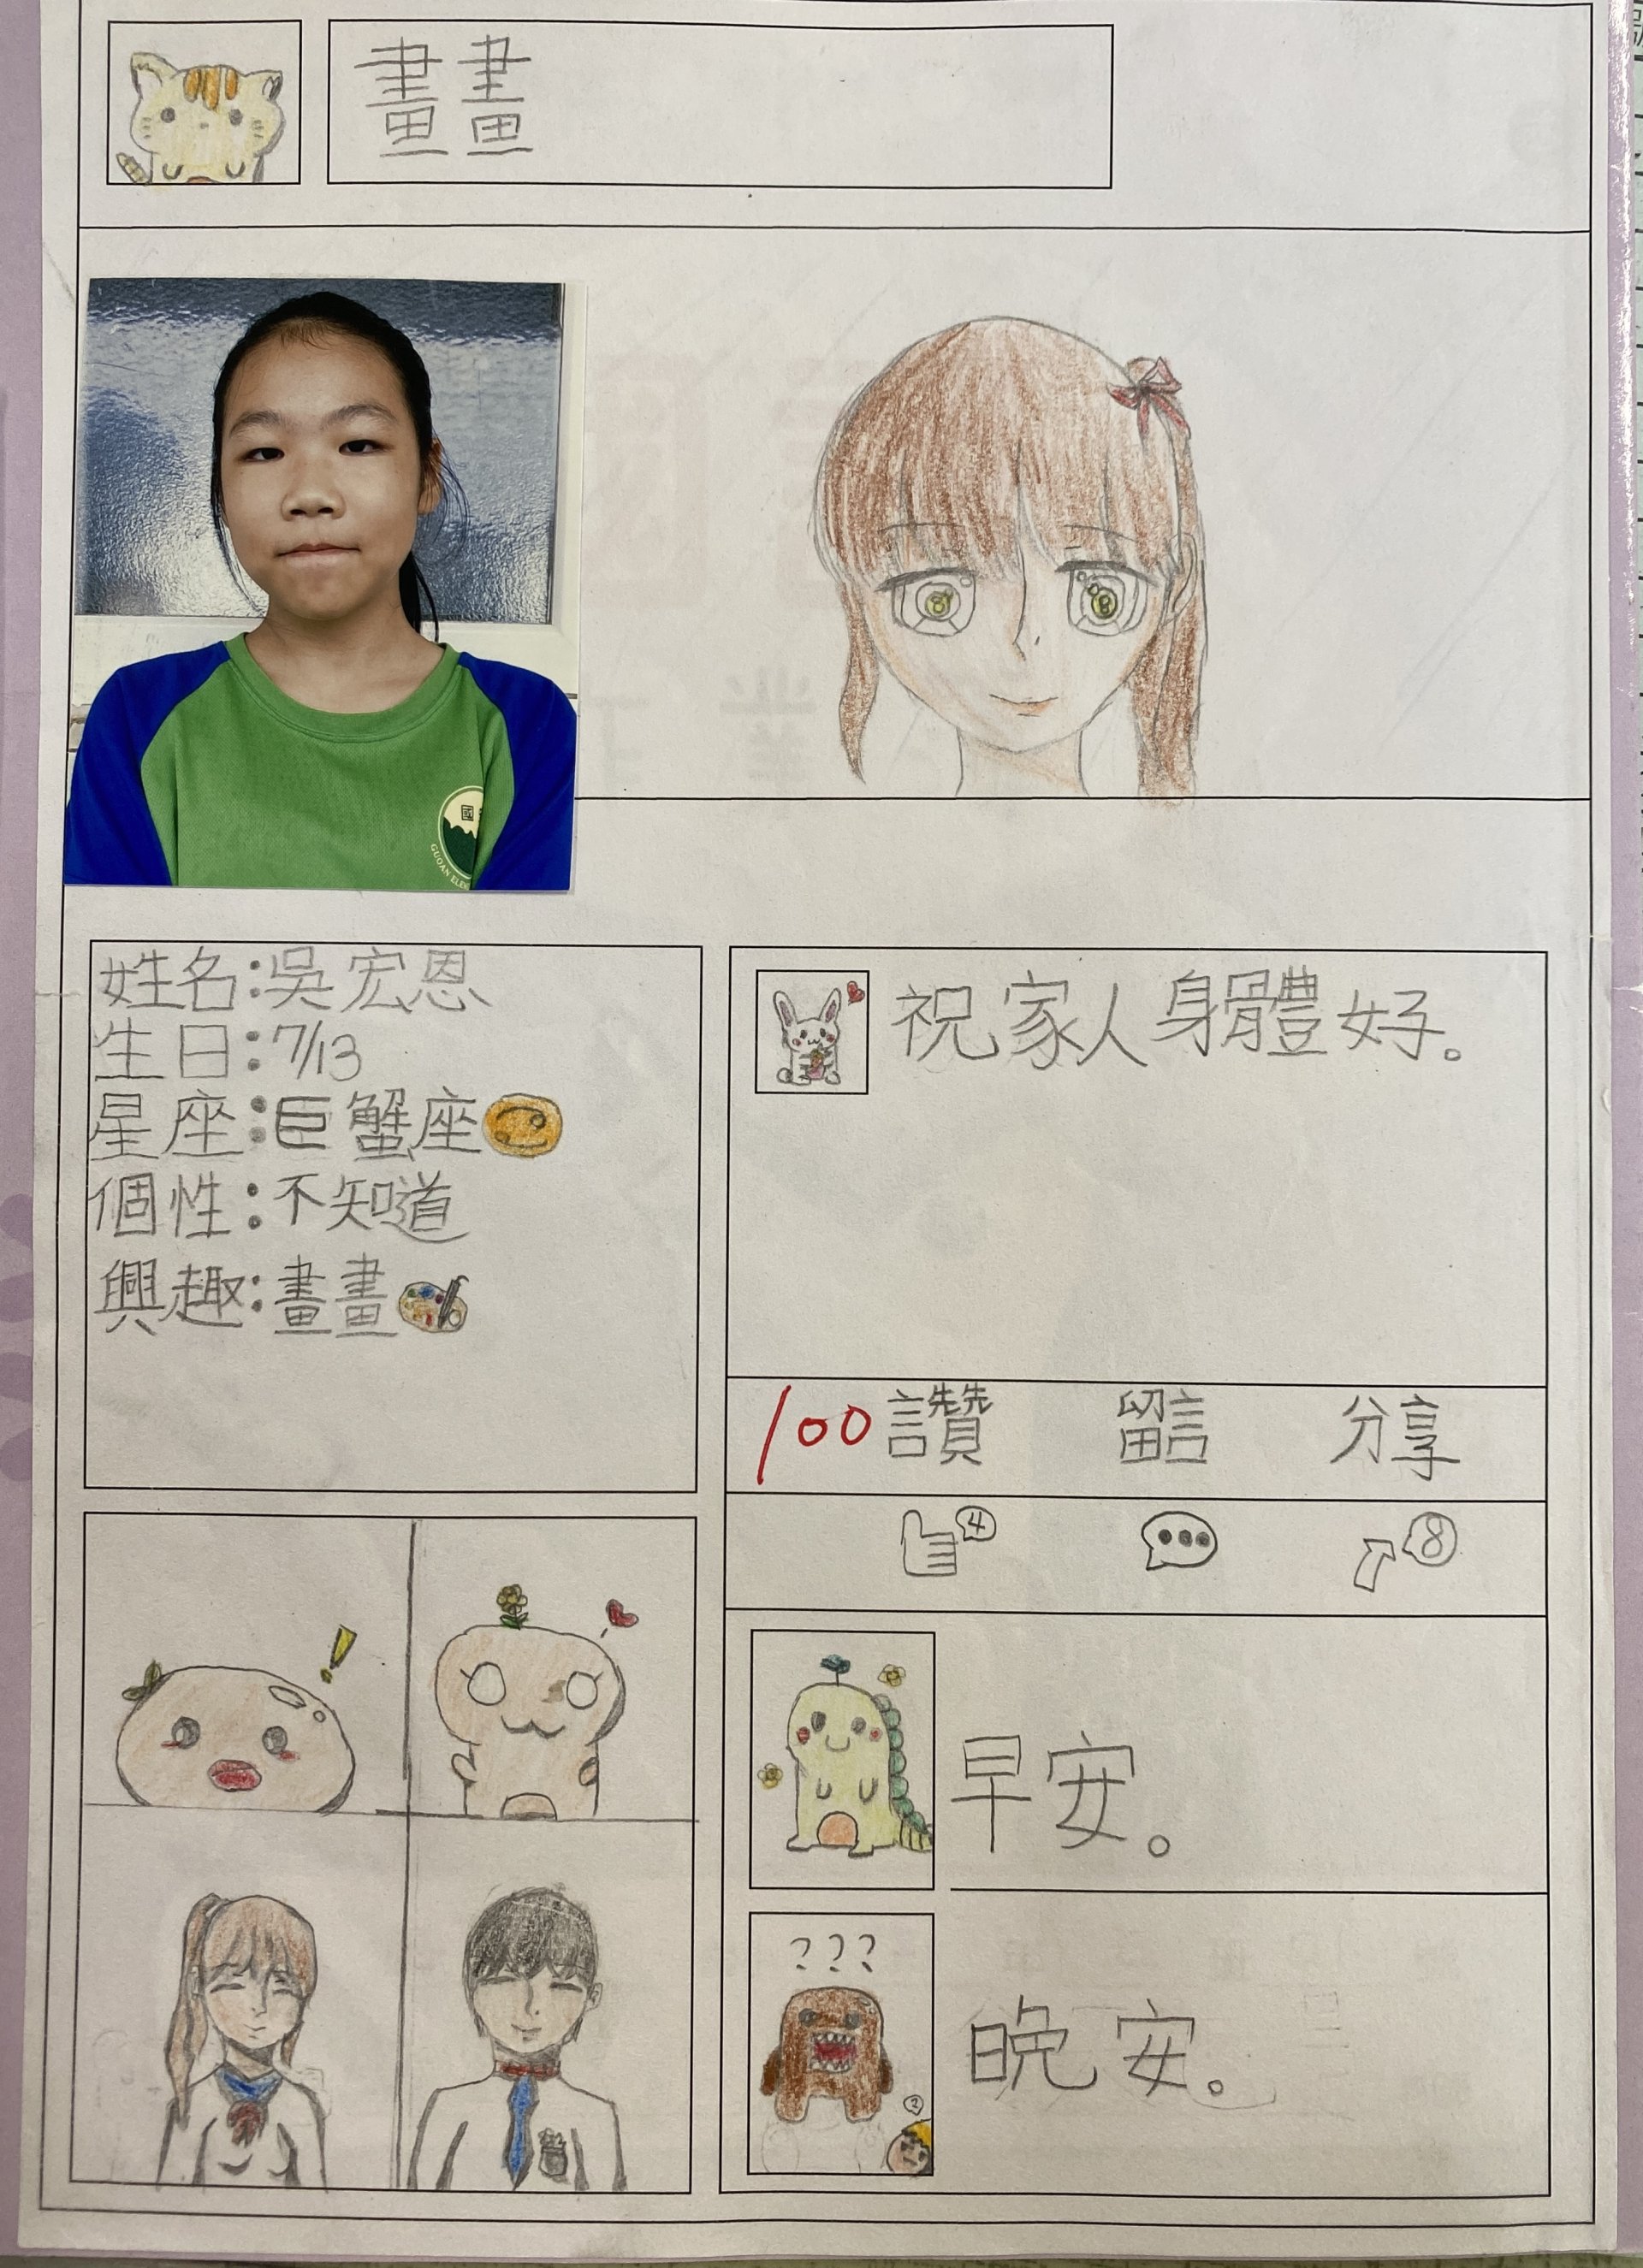 畫畫
國
GUOAN ELE
姓名：吳宏恩
生日：7/13
星座：巨蟹座
個性：不知道
興趣：畫畫
祝家人身體好。
100 讚 留言 分享
4 8
早安。
???
晚安。
?